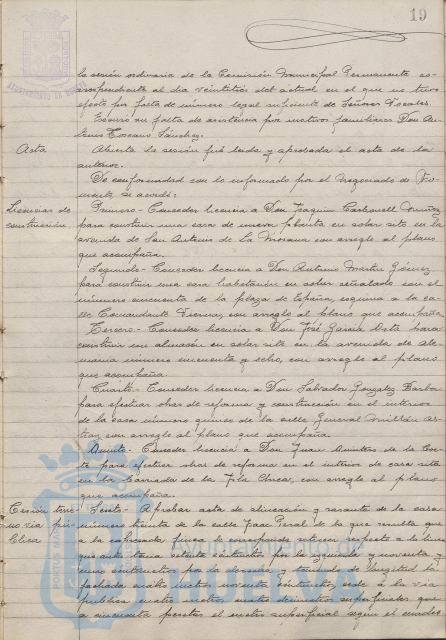 19
la sesión ordinaria de la Comisión Municipal Permanente co-
rrespondiente al día veintitres del actual en el que no tuvo
efecto por falta de número legal suficiente de Señores Vocales.
Excusó su falta de asistencia por motivos familiares Don An-
tonio Toscano Sánchez.
Acta
Abierta la sesión fué leida y aprobada el acta de la
anterior.
De conformidad con lo informado por el Negociado de Fo-
mento, se acordó:
Licencias de
construcción
Primero- Conceder licencia a Don Joaquin Carbonell Muñoz
para construir una casa de nueva planta en solar sito en la
avenida de San Antonio de la con arreglo al plano
que acompaña.
Segundo- Conceder licencia a Don Antonio Martin Gómez
para construir una casa habitación en solar señalado con el
número cincuenta de la plaza de España, esquina a la ca-
lle Comandante con arreglo al plano que acompaña.
Tercero- Conceder licencia a Don José Garcia para
construir un almacén en solar sito en la avenida de Ale-
mania número cincuenta y ocho, con arreglo al plano
que acompaña
Cuarto- Conceder licencia a Don Salvador Gonzalez Barba
para efectuar obras de reforma y construcción en el interior
de la casa número quince de la calle General Millán As-
tray con arreglo al plano que acompaña.
Quinto- Conceder licencia a Don Juan de la Cor-
te para efectuar obras de reforma en el interior de casa sita
en la Barriada de la Isla Chica, con arreglo al plano
que acompaña.
Cesión terre-
no vía pú-
blica
Sexto- Aprobar acta de alineación y rasante de la casa
número treinta de la calle Isaac Peral de la que resulta que
a la expresada finca le corresponde retroceso respecto a la linea
que actua ochenta centimetros por la izquierda y noventa y
cinco centimetros por la derecha y teniendo de longitud la
fachada cuatro metros noventa centimetros, cede a la via
publica cuatro metros cuatro decimetros superficiales que
a cincuenta pesetas el metro superficial según el cuadro